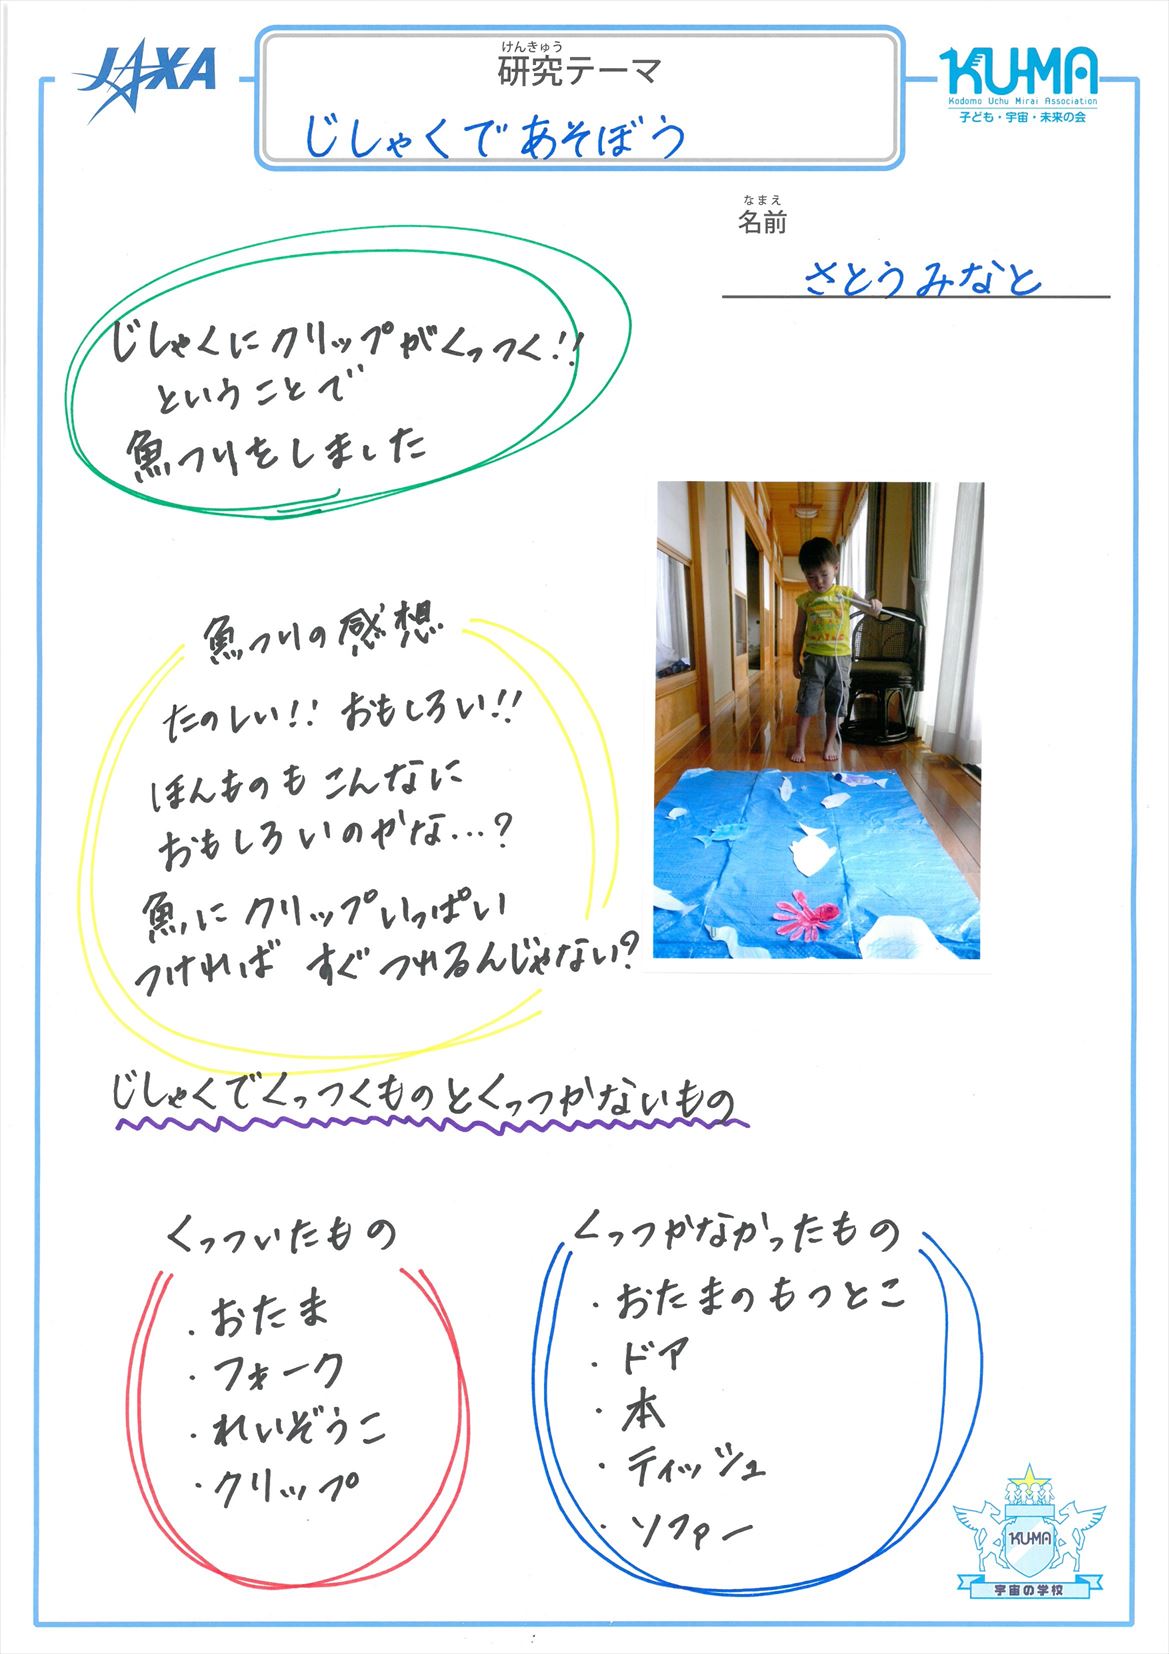 JAXA
けんきゅう
研究テーマ
じしゃくであそぼう
KU-MA
Kodomo Uchu Mirai Association
子ども・宇宙・未来の会
なまえ
名前
さとうみなと
じしゃくにクリップがくっつく!!
ということで
魚つりをしました
魚つりの感想
たのしい!! おもしろい!!
ほんものもこんなに
おもしろいのかな…?
魚にクリップいっぱい
つければ すぐつれるんじゃない?
じしゃくでくっつくものとくっつかないもの
くっついたもの
・おたま
・フォーク
・れいぞうこ
・クリップ
くっつかなかったもの
・おたまのもつとこ
・ドア
・本
・ティッシュ
・ソファー
KU-MA
宇宙の学校